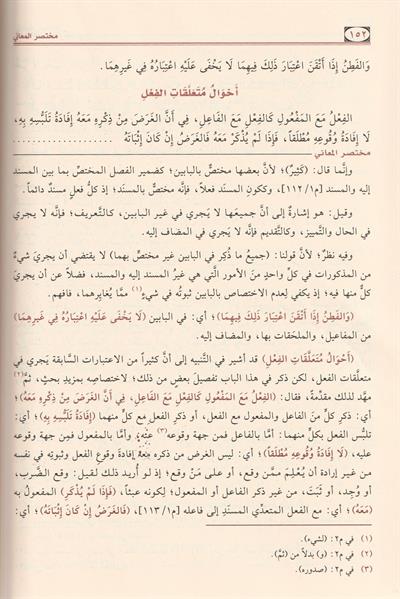 ١٥٢ مختصر المعاني
وَالفَطِنُ إِذَا أَتْقَنَ اعْتِبَارَ ذَلِكَ فِيهِمَا لَا يَخْفَى عَلَيْهِ اعْتِبَارُهُ فِي غَيْرِهِمَا.
أَحْوَالُ مُتَعَلِّقَاتِ الفِعْلِ
الفِعْلُ مَعَ المَفْعُولِ كَالفِعْلِ مَعَ الفَاعِلِ، فِي أَنَّ الغَرَضَ مِنْ ذِكْرِهِ مَعَهُ إِفَادَةُ تَلَبُّسِهِ بِهِ،
لَا إِفَادَةُ وُقُوعِهِ مُطْلَقاً، فَإِذَا لَمْ يُذْكَرْ مَعَهُ فَالغَرَضُ إِنْ كَانَ إِثْبَاتَهُ ......................
مختصر المعاني
وإنَّما قال: (كَثِيرٌ)؛ لأنَّ بعضها مختصٌّ بالبابين؛ كضمير الفصل المختص بما بين المسند
إليه والمسند [م١/١١٢]، وككون المسند فعلاً، فإنَّه مختصٌّ بالمسند؛ إذ كلُّ فعلٍ مسندٌ دائماً.
وقيل: هو إشارةٌ إلى أنَّ جميعها لا يَجري في غير البابين، كالتَّعريف؛ فإنَّه لا يجري
في الحال والتَّمييز، وكالتَّقديم فإنَّه لا يجري في المضاف إليه.
وفيه نظرٌ؛ لأنَّ قولنا: (جميعُ ما ذُكِر في البابين غير مختصٍّ بهما) لا يقتضي أن يجريَ شيءٌ
من المذكورات في كلِّ واحدٍ منَ الأمور الَّتي هي غيرُ المسند إليه والمسند، فضلاً عن أن يجريَ
كلٌّ منها فيه؛ إذ يكفي لِعدم الاختصاص بالبابين ثبوتُه في شيءٍ(١) ممَّا يُغايِرهما، فافهم.
(وَالفَطِنُ إِذَا أَتْقَنَ اعْتِبَارَ ذَلِكَ فِيهِمَا)؛ أي: في البابين (لَا يَخْفَى عَلَيْهِ اعْتِبَارُهُ فِي غَيْرِهِمَا)
من المفاعيل، والملحَقات بها، والمضاف إليه.
(أَحْوَالُ مُتَعَلِّقَاتِ الفِعْلِ) قد أشير في التَّنبيه إلى أنَّ كثيراً من الاعتبارات السَّابقة يَجري في
متعلِّقات الفعل، لكن ذكر في هذا الباب تفصيلَ بعضٍ من ذلك؛ لاختصاصِه بمزيدِ بحثٍ، ثمَّ(٢)
مهَّد لذلك مقدِّمةً، فقال: (الفِعْلُ مَعَ المَفْعُولِ كَالفِعْلِ مَعَ الفَاعِلِ، فِي أَنَّ الغَرَضَ مِنْ ذِكْرِهِ مَعَهُ)؛
أي: ذكر كلٍّ منَ الفاعل والمفعول مع الفعل، أو ذكر الفعل مع كلٍّ منهما (إِفَادَةُ تَلَبُّسِهِ بِهِ)؛ أي:
تلبُّس الفعل بكلٍّ منهما: أمَّا بالفاعل فمن جهة وقوعه(٣) عنه، وأمَّا بالمفعول فمن جهة وقوعه
عليه، (لَا إِفَادَةُ وُقُوعِهِ مُطْلَقاً)؛ أي: ليس الغرض من ذكره معه إفادةَ وقوع الفعل وثبوته في نفسه
من غير إرادة أن يُعْلِمَ ممَّن وقع، أو على مَنْ وقع؛ إذ لو أُريد ذلك لقيل: وقع الضَّرب،
أو وُجِد، أو ثَبَتَ، من غير ذكر الفاعل أو المفعول؛ لكونه عبثاً، (فَإِذَا لَمْ يُذْكَرِ) المفعول به
(مَعَهُ)؛ أي: مع الفعل المتعدِّي المسنَد إلى فاعله [م١/١١٣]، (فَالغَرَضُ إِنْ كَانَ إِثْبَاتَهُ)؛ أي:
(١) في م٢: (لشيء).
(٢) في م٢: (و) بدلاً من (ثمَّ).
(٣) في م٢: (صدوره).